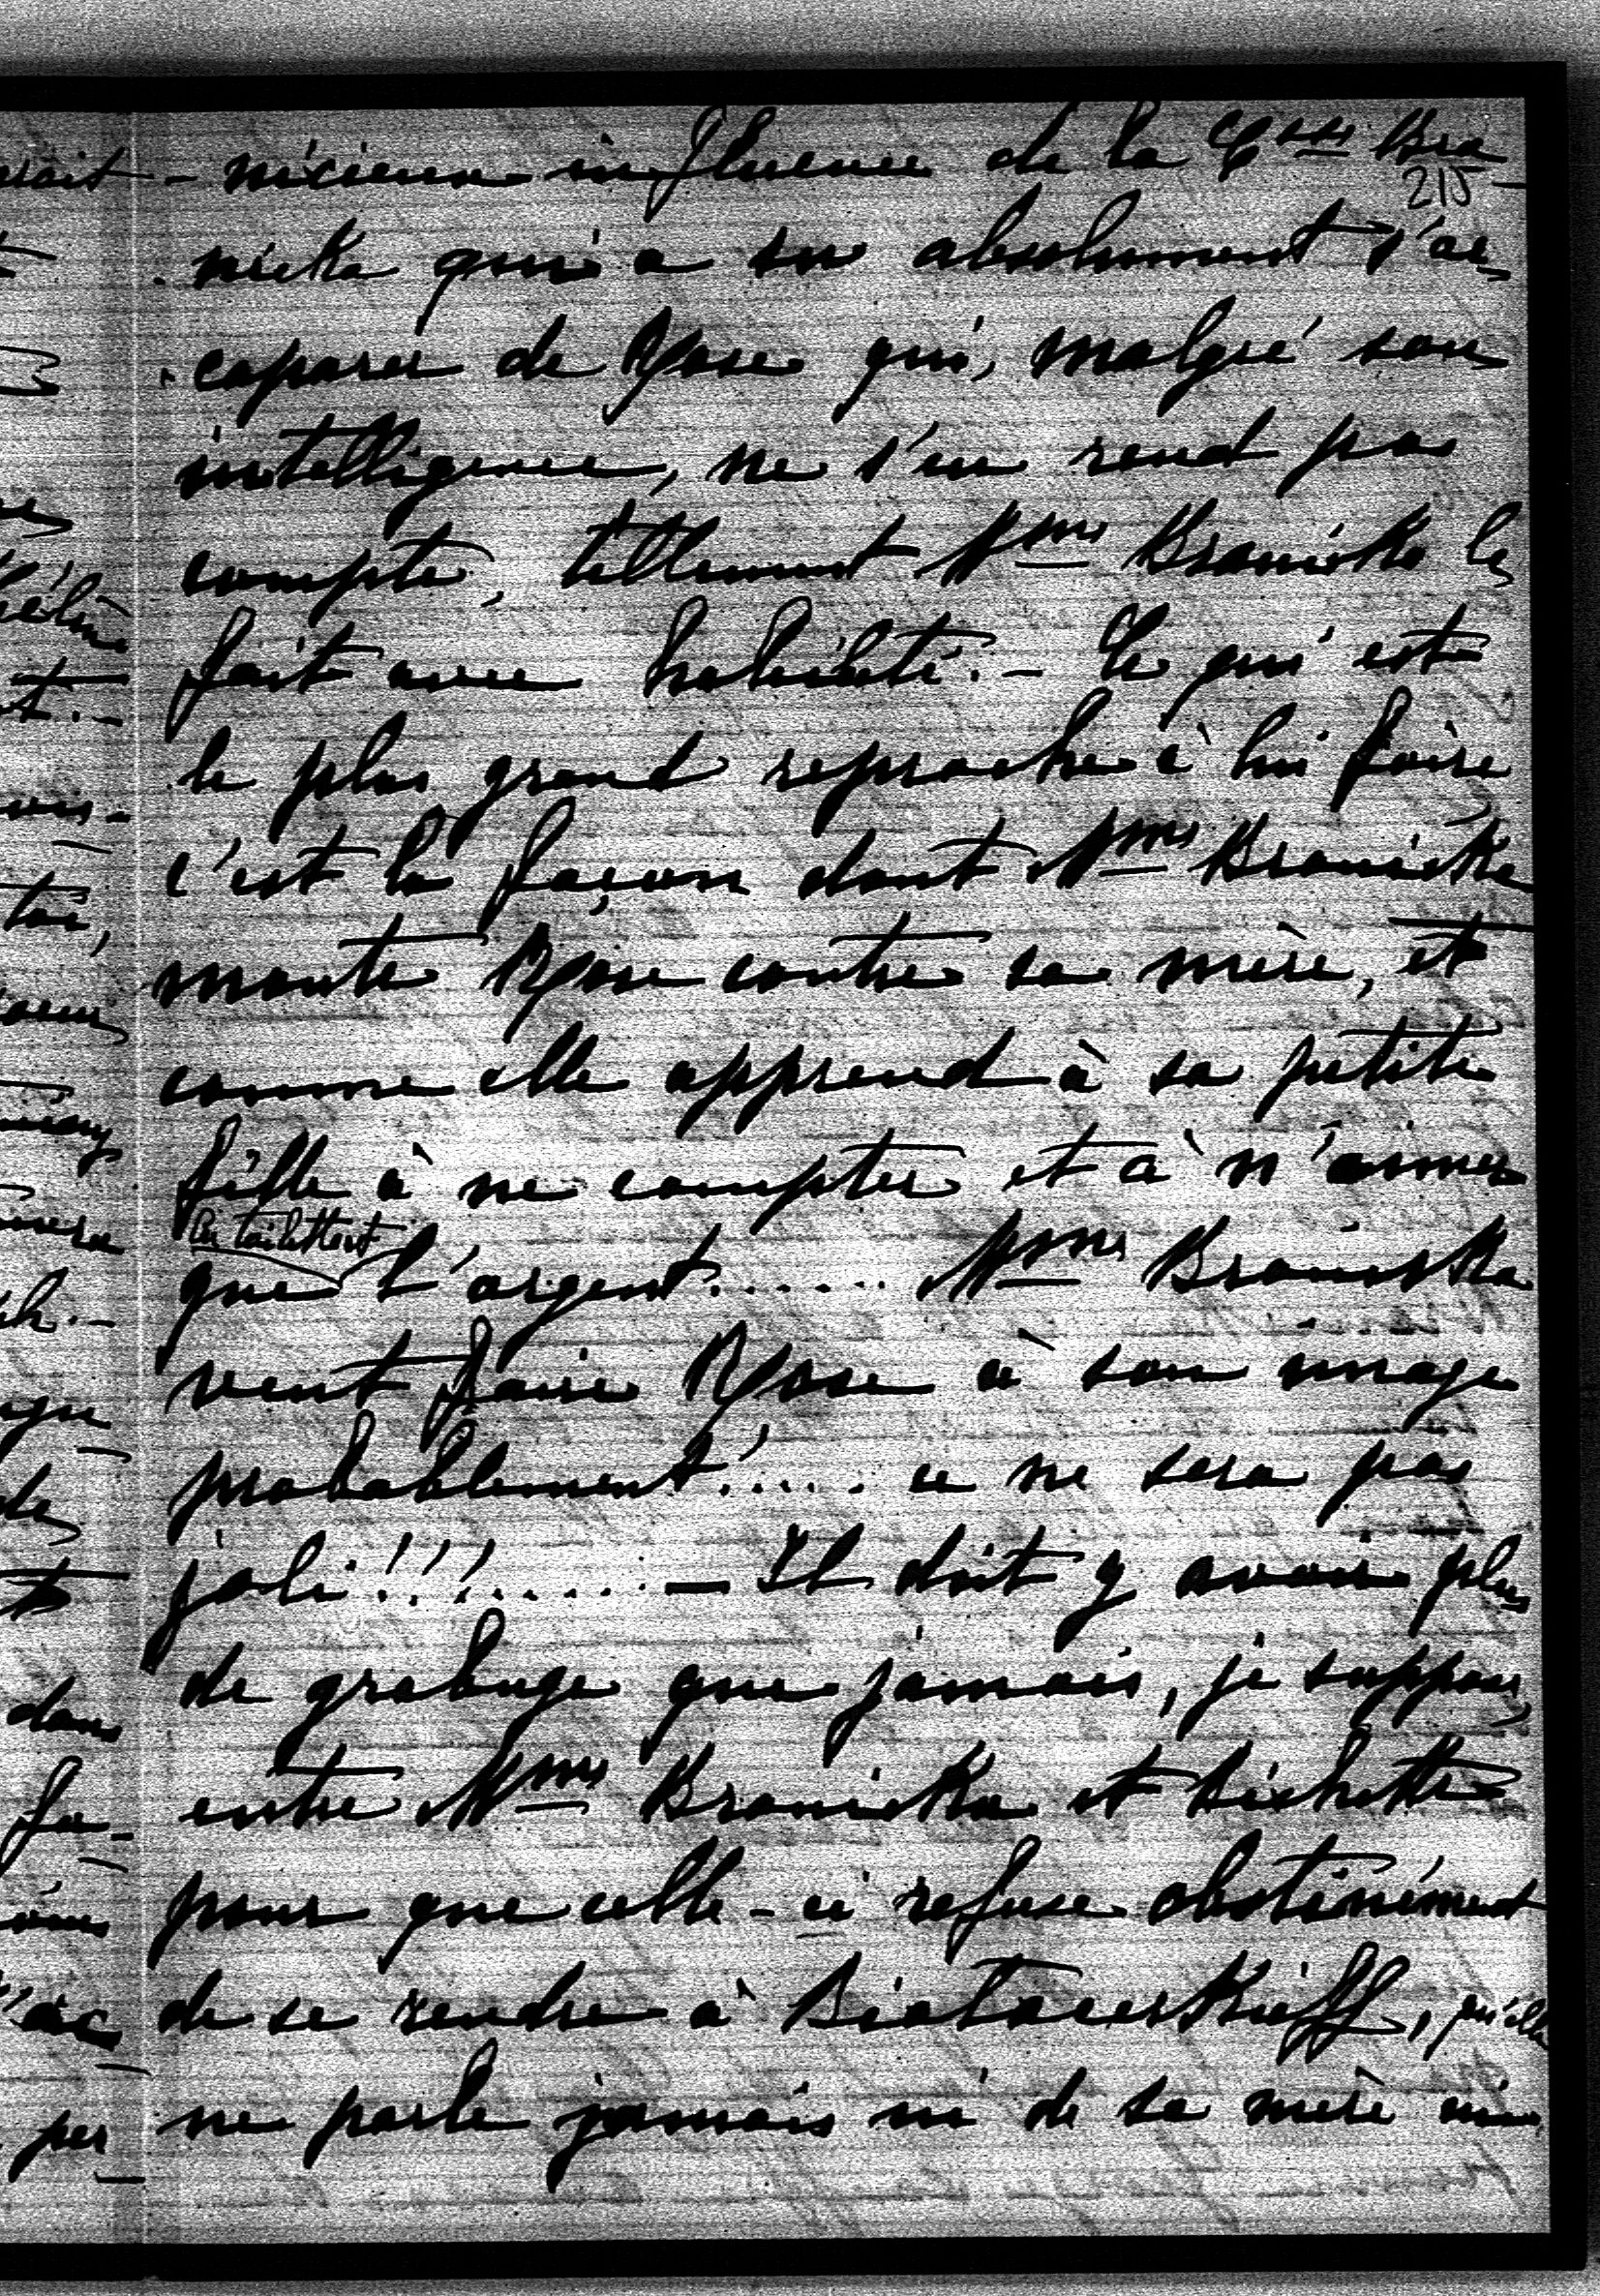 - nicieuse influence de la Csse Bra-
215
nicka qui a su absolument s'ac-
caparer de Rose qui, malgré son
intelligence, ne s'en rend pas
compte, tellement Mme Branicka le
fait avec habileté. - Ce qui est
le plus grand reproche à lui faire
c'est la façon dont Mme Branicka
monte Rose contre sa mère, et
comme elle apprend à sa petite
fille à ne compter et à n'aimer
les toilettes et
que l'argent...... Mme Branicka
veut faire Rose à son image
probablement!.... ce ne sera pas
joli!!!..... — Il doit y avoir plus
de grabuge que jamais, je suppose,
entre Mme Branicka et Bichette
pour que celle-ci refuse obstinément
de se rendre à Biatacerkieff, qu'elle
ne parle jamais ni de sa mère ni